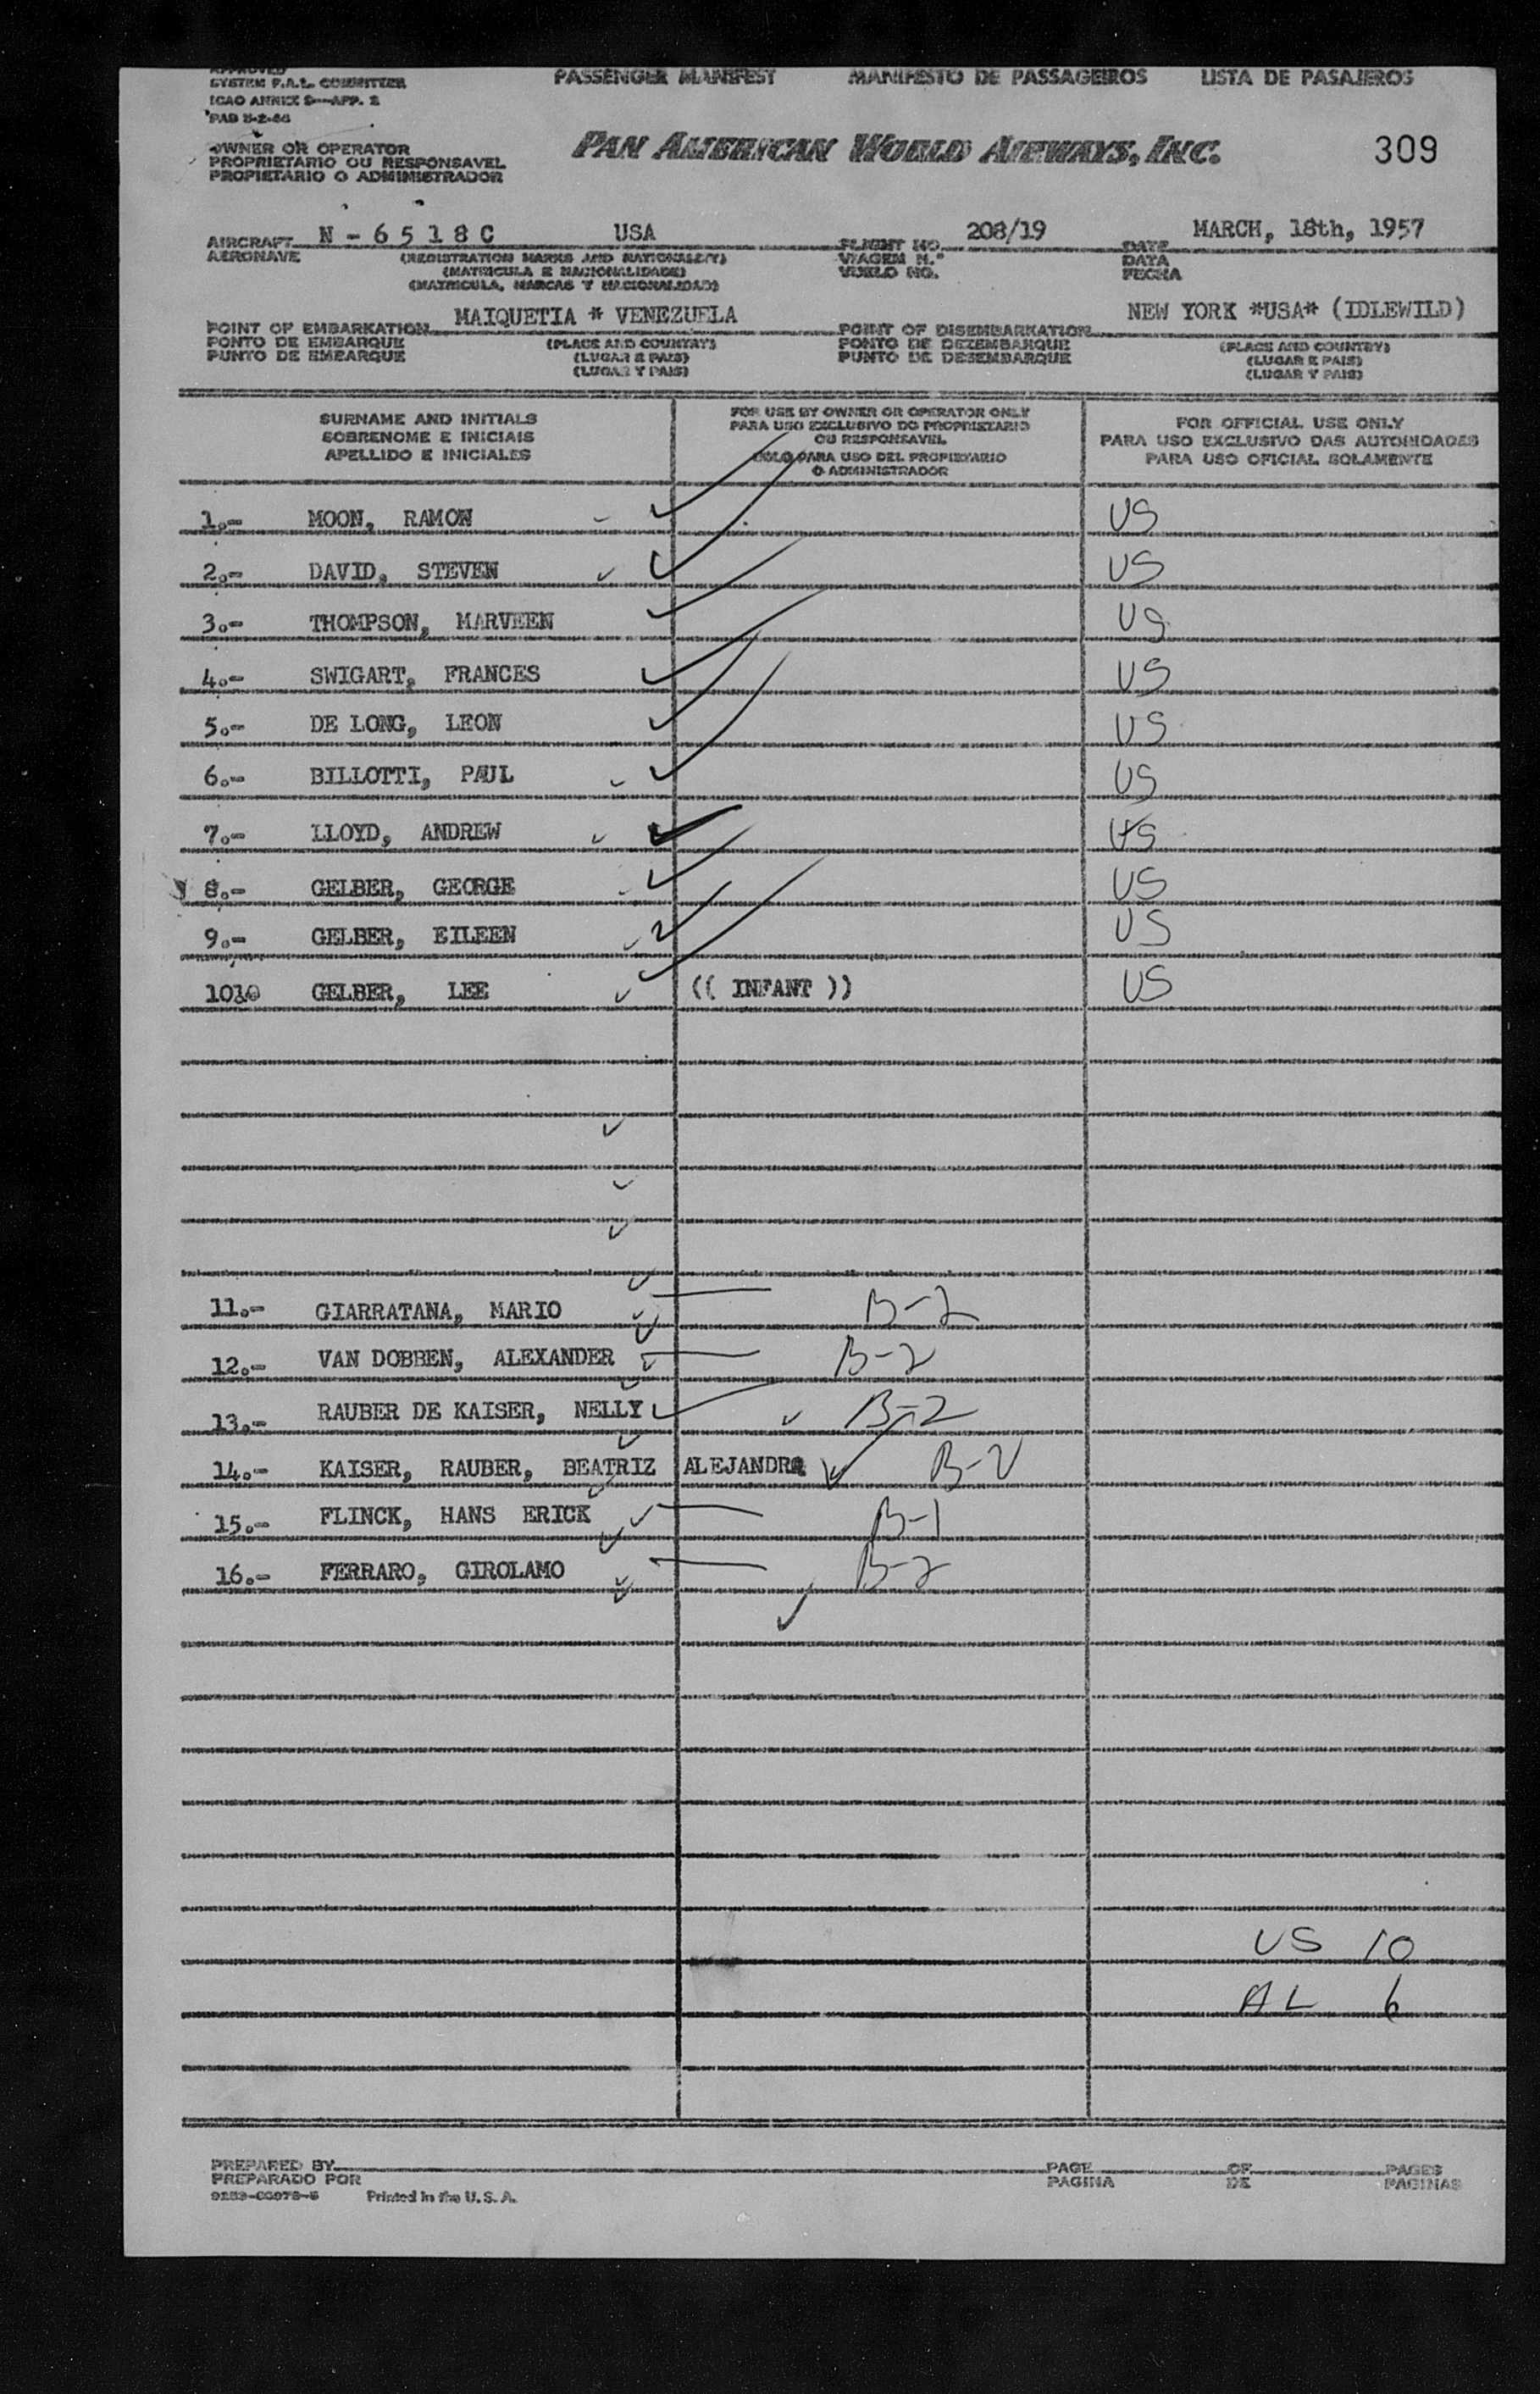 APPROVED
SYSTEM F.A.L. COMMITTEE
ICAO ANNEX 9—APP. 2
PAB 5-2-66
PASSENGER MANIFEST MANIFESTO DE PASSAGEIROS LISTA DE PASAJEROS
OWNER OR OPERATOR
PROPRIETARIO OU RESPONSAVEL
PROPIETARIO O ADMINISTRADOR
PAN AMERICAN WORLD AIRWAYS, INC. 309
AIRCRAFT N - 6 5 1 8 C USA FLIGHT NO. 208/19 DATE MARCH, 18th, 1957
AERONAVE (REGISTRATION MARKS AND NATIONALITY) VIAGEM N.º DATA
(MATRICULA E NACIONALIDADE) VUELO NO. FECHA
(MATRICULA, MARCAS Y NACIONALIDAD)
POINT OF EMBARKATION MAIQUETIA * VENEZUELA POINT OF DISEMBARKATION NEW YORK *USA* (IDLEWILD)
PONTO DE EMBARQUE (PLACE AND COUNTRY) PONTO DE DEZEMBARQUE (PLACE AND COUNTRY)
PUNTO DE EMBARQUE (LUGAR E PAIS) PUNTO DE DESEMBARQUE (LUGAR E PAIS)
(LUGAR Y PAIS) (LUGAR Y PAIS)
SURNAME AND INITIALS
SOBRENOME E INICIAIS
APELLIDO E INICIALES
FOR USE BY OWNER OR OPERATOR ONLY
PARA USO EXCLUSIVO DO PROPRIETARIO
OU RESPONSAVEL
SOLO PARA USO DEL PROPIETARIO
O ADMINISTRADOR
FOR OFFICIAL USE ONLY
PARA USO EXCLUSIVO DAS AUTORIDADES
PARA USO OFICIAL SOLAMENTE
1.- MOON, RAMON US
2.- DAVID, STEVEN US
3.- THOMPSON, MARVEEN US
4.- SWIGART, FRANCES US
5.- DE LONG, LEON US
6.- BILLOTTI, PAUL US
7.- LLOYD, ANDREW US
8.- GELBER, GEORGE US
9.- GELBER, EILEEN US
1010 GELBER, LEE (( INFANT )) US
11.- GIARRATANA, MARIO B-2
12.- VAN DOBBEN, ALEXANDER B-2
13.- RAUBER DE KAISER, NELLY B-2
14.- KAISER, RAUBER, BEATRIZ ALEJANDRA B-2
15.- FLINCK, HANS ERICK B-1
16.- FERRARO, GIROLAMO B-2
US 10
AL 6
PREPARED BY PAGE OF PAGES
PREPARADO POR PAGINA DE PAGINAS
Printed in the U. S. A.